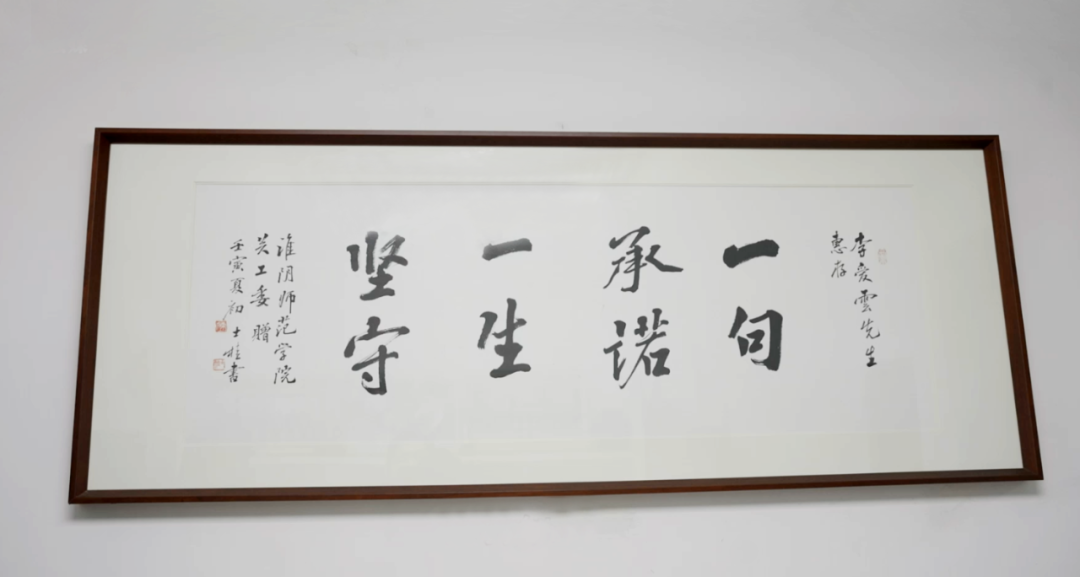 李爱雲先生
惠存
一句
承诺
一生
坚守
淮阴师范学院
关工委赠
壬寅夏初士桂书